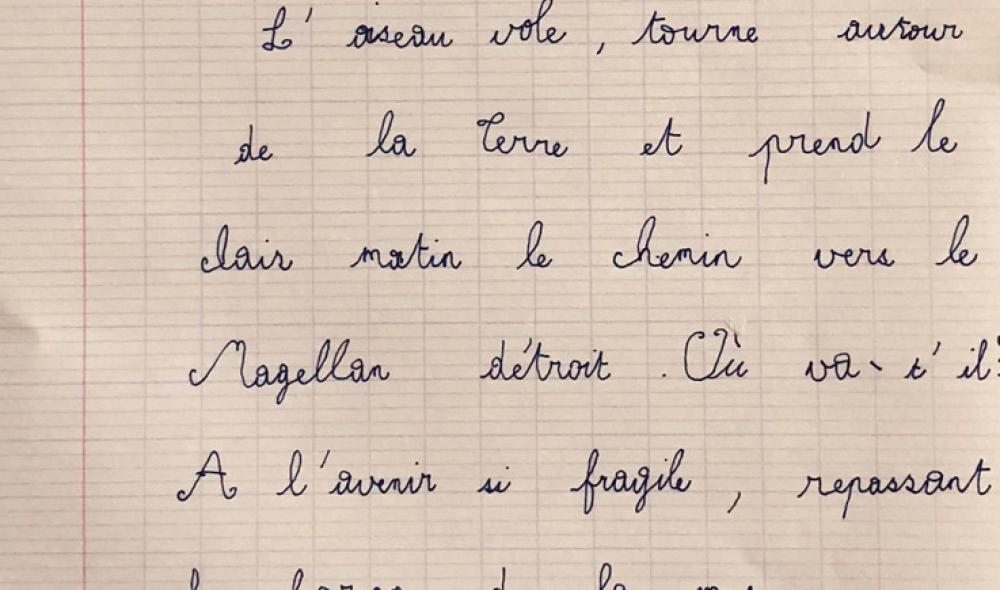 L' oiseau vole, tourne autour
de la Terre et prend le
clair matin le chemin vers le
Magellan détroit. Où va-t'il?
A l'avenir si fragile, repassant